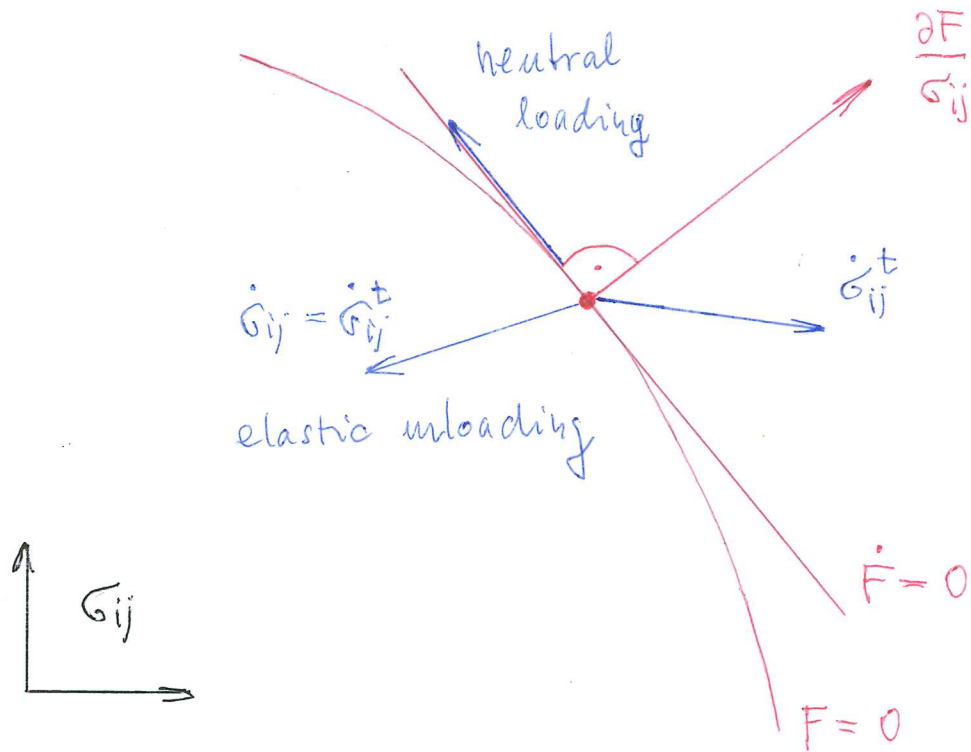 neutral
loading
∂F
σij
σ̇ij = σ̇ᵗij
σ̇ᵗij
elastic unloading
σij
Ḟ = 0
F = 0